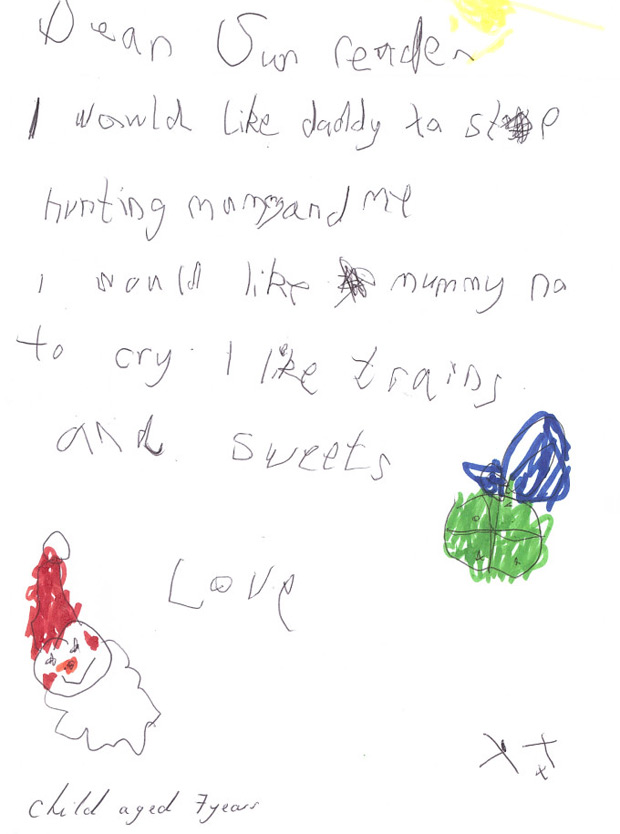 Dear Sun reader
I would like daddy to stop
hurting mummy and me
i would like mummy no
to cry. I like trains
and sweets
Love
xx
x
child aged 7 years